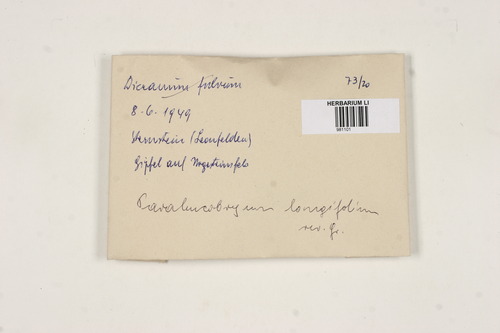 Dicranum fulvum
73/20
8.6.1949
HERBARIUM LI
981101
Sternstein (Leonfelden)
Gipfel auf Urgesteinfels
Paraleucobryum longifolium
rev. Gr.